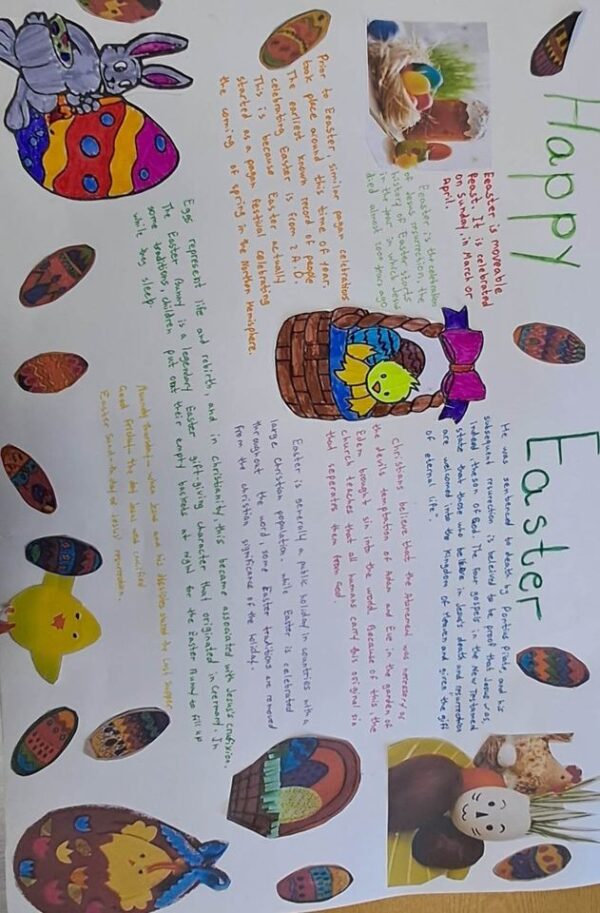 Happy Easter
Eeaster is moveable
feast. It is celebrated
on Sunday, in March or
April.
Eeaster is the celebration
of Jesus resurrection, the
history of Easter starts
in the year in which Jesus
died almost 2000 years ago
Prior to Eeaster, similar pagan celebrations
took place around this time of year.
The earliest known record of people
celebrating Easter is from 2 A.D.
This is because Easter actually
started as a pagan festival celebrating
the coming of spring in the Northen Hemisphere.
He was sentenced to death by Pontius Pilate, and his
subsequent resurrection is beleived to be proof that Jesus was,
indeed the son of God. The four gospels in the New Testamend
state that those who believe in Jesus' death and resurrection
are welcomed into the Kingdom of Heaven and given the gift
of eternal life".
Christians believe that the Atonement was necessary as
the devils temptation of Adam and Eve in the garden of
Edem brought sin into the world. Because of this, the
church teaches that all humans carry this original sin
that seperates them from God.
Easter is generally a public holiday in countries with a
large Christian population. while Easter is celebrated
throughout the word, some Easter traditions are removed
from the christian significance of the holiday.
Eggs represent life and rebirth, and in christianity, this became associated with Jesus's crucifixion.
The Easter Bunny is a legendary Easter gift-giving character that originated in Germany. In
some traditions, children put out their empty baskets at night for the Easter Bunny to fill up
while they sleep.
Maundy Thursday - when Jesus and his disciples shared the Last Supper
Good Friday - the day Jesus was crucified
Easter Sunday - the day of Jesus' resurrection.